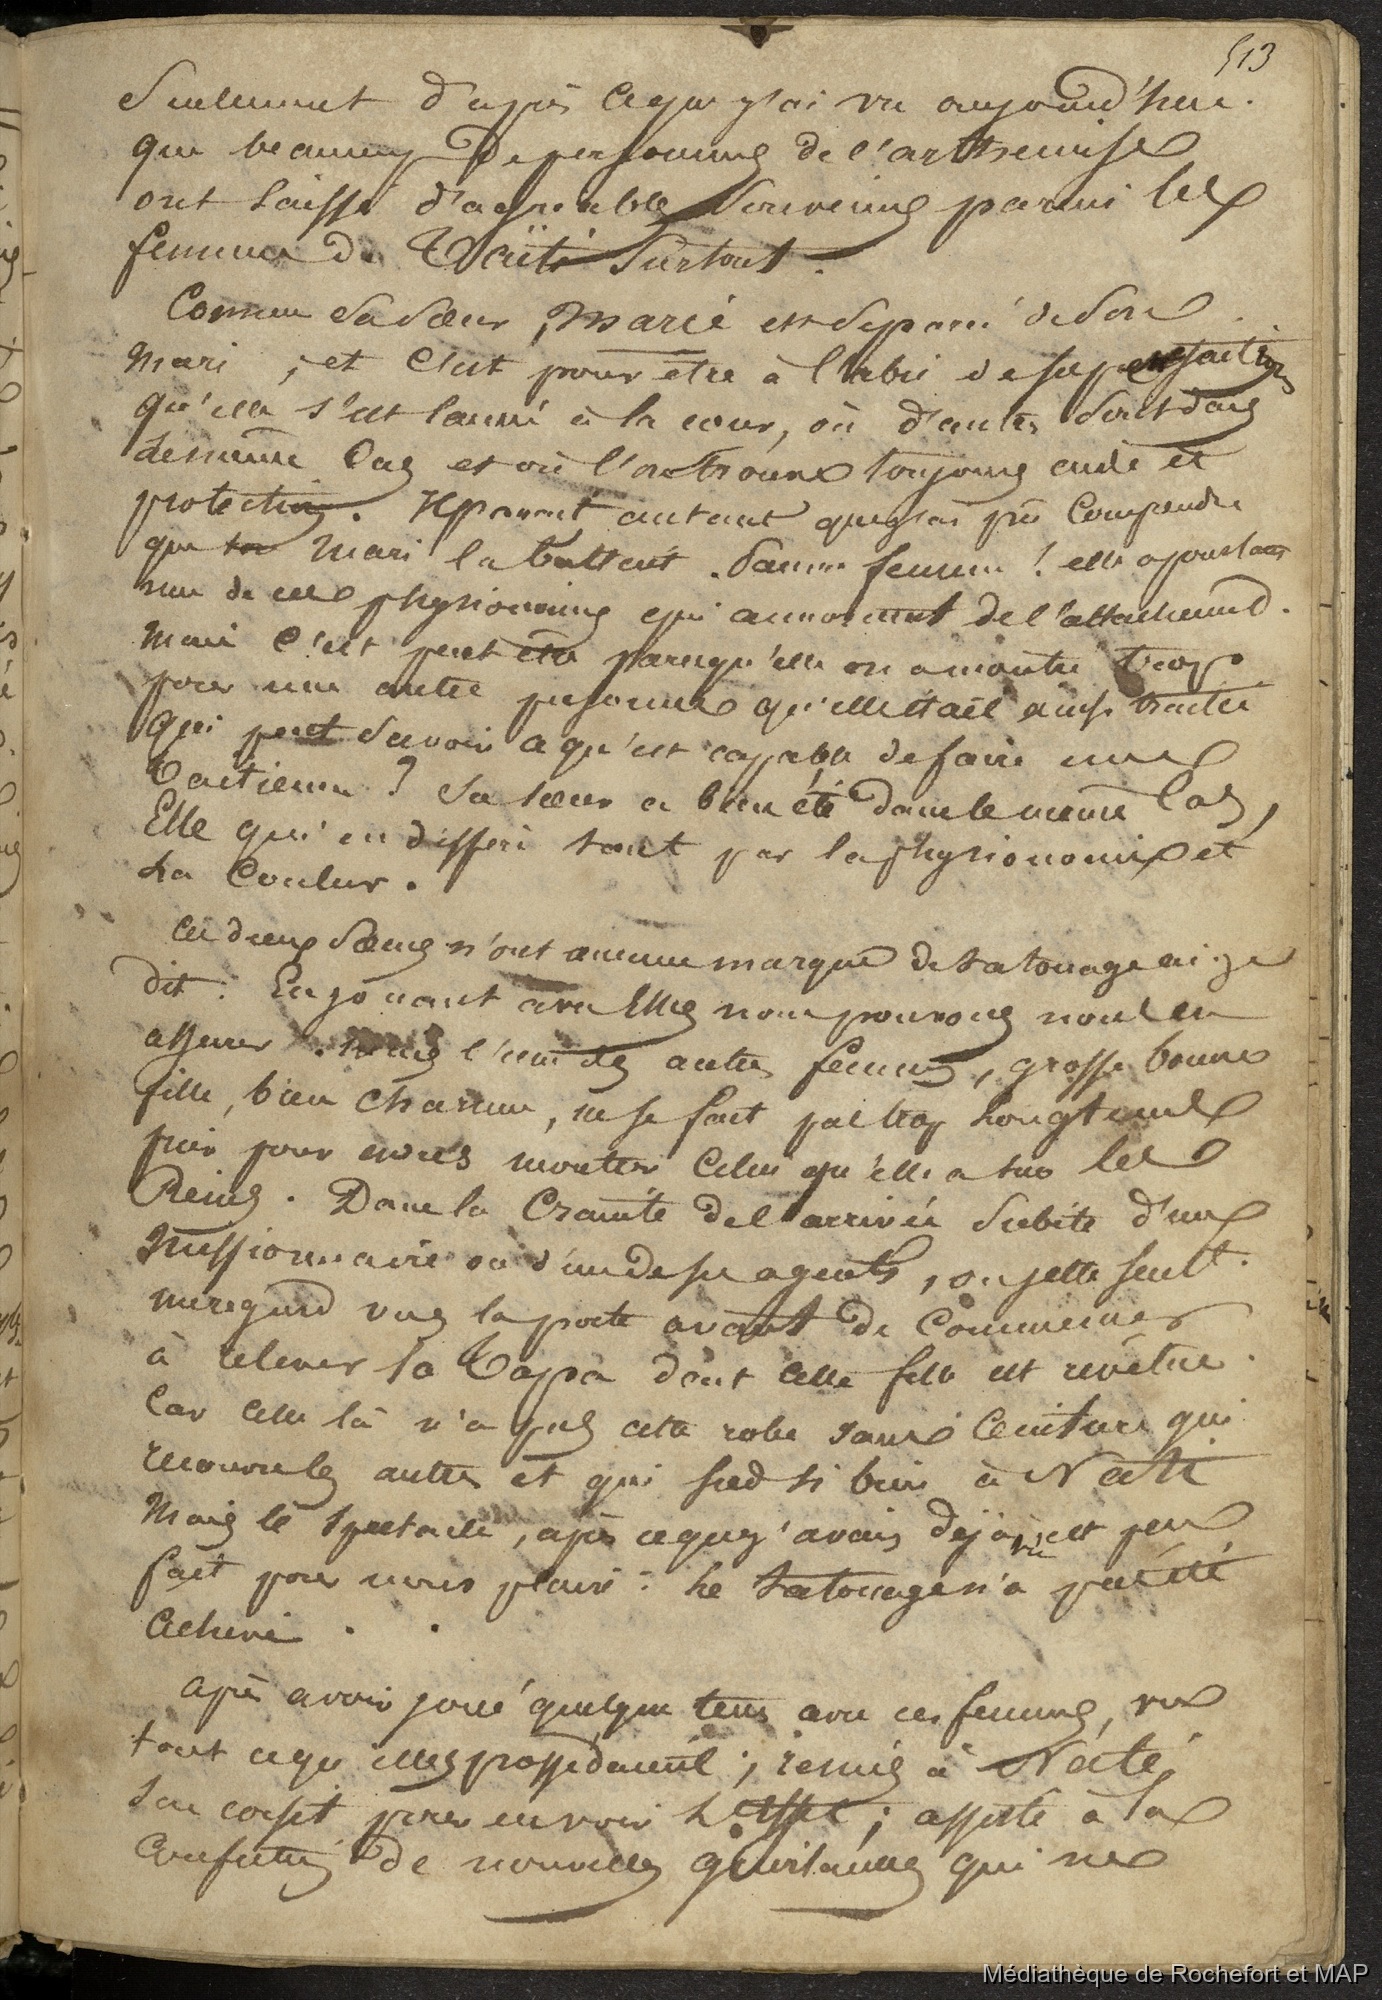 513
Seulement d'après ce que j'ai vu aujourd'hui.
que beaucoup de personnes de l'arthemise
ont laissé d'agreables Souvenirs parmi les
femmes de Taïti Surtout.
Comme sa sœur, Marie est separé de son
mari, et c'est pour être à l'abri de ses
qu'elle s'est à la cour, où d'autres sont dans
le même Cas et où l'on trouve toujours aide et
protection. Il parait autant que j'ai pu Comprendre
que son mari la battait. femme ! elle a pourtant
une de ces physionomies qui annoncent de l'attachement.
mais c'est peut être parcequ'elle en a montré trop
pour une autre personne qu'elle était ainsi traitée
qui peut savoir ce qu'est capable de faire une
taitienne ? Sa sœur a bien été dans le meme Cas,
Elle qui en differe tant par la physionomie et
La Couleur.
Ces deux Sœurs n'ont aucune marque de tatouage ai-je
dit : En jouant avec Elles nous pouvons nous en
assurer. mais l'une des autres femmes, grosse bonne
fille, bien charnue, ne se fait pas trop Longtems
prier pour nous montrer Celui qu'elle a sur les
Reins. Dans la Crainte de l'arrivée Subite d'un
Missionnaire ou d'un de ses agents, on jette seult.
un regard vers la porte avant de Commencer
à relever la Tapa dont cette fille est revêtue.
Car celle là n'a pas cette robe sans Ceinture qui
recouvre les autres et qui sied si bien à Naté
Mais le spectacle, après ce que j'avais déjà vu est peu
fait pour nous plaire : Le tatouage n'a pas été
Achevé . .
Après avoir joué quelque tems avec ces femmes, vu
tout ce qu'elles possédaient ; remis à Naté
son corset pour en voir L'effet ; assisté à la
Confection de nouvelles guirlandes qui ne
Médiathèque de Rochefort et MAP